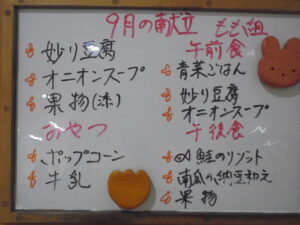 9月の献立
ももく組
炒り豆腐
オニオンスープ
果物(添)
おやつ
ポップコーン
牛乳
午前食
青菜ごはん
炒り豆腐
オニオンスープ
午後食
鮭のリゾット
南瓜の納豆和え
果物